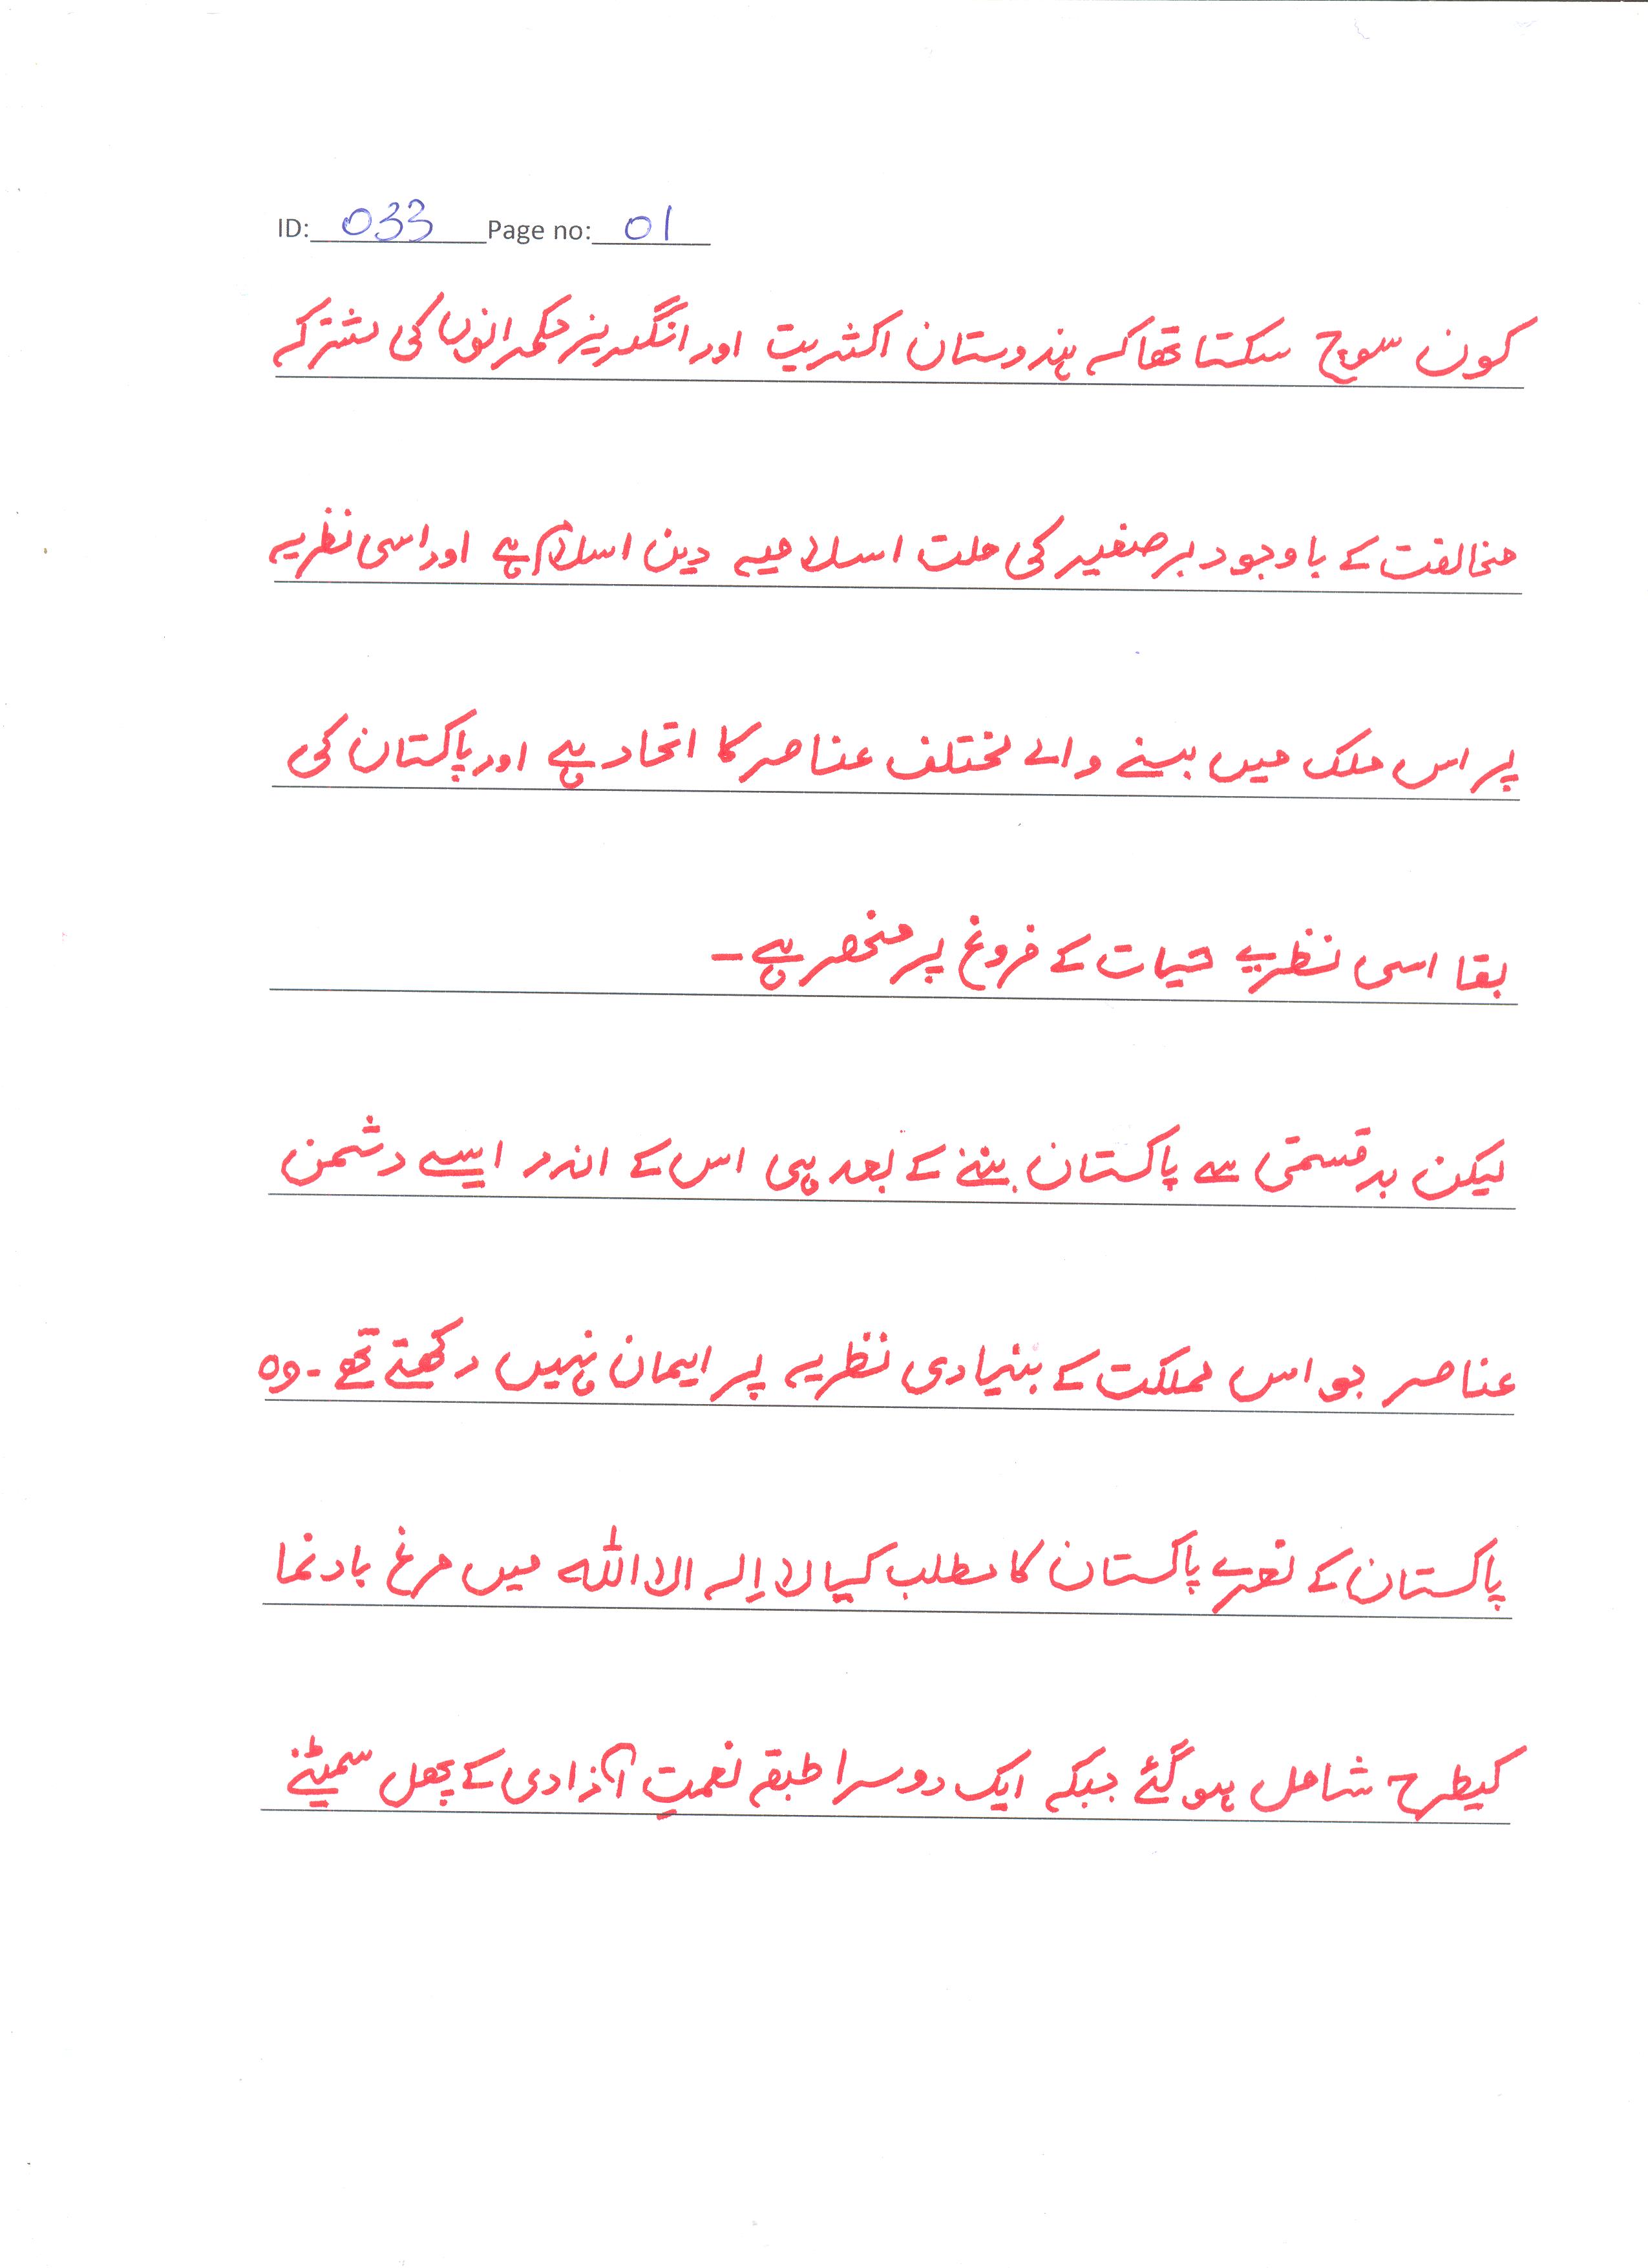 ID: 033 Page no: 01
کون سوچ سکتا تھا کہ ہندوستان اکثریت اور انگریز حکمرانوں کی مشترکہ
مخالفت کے باوجود برصغیر کی ملت اسلامیہ دین اسلام ہے اور اسی نظریہ
پر اس ملک میں بسنے والے مختلف عناصر کا اتحاد ہے اور پاکستان کی
بقا اسی نظریے حیات کے فروغ پر منحصر ہے۔
لیکن بدقسمتی سے پاکستان بننے کے بعد ہی اس کے اندر ایسے دشمن
عناصر جو اس مملکت کے بنیادی نظریہ پر ایمان نہیں رکھتے تھے۔ وہ
پاکستان کے نعرے پاکستان کا مطلب کیا لا اِلہ الا اللہ میں مرغ بادنما
کیطرح شامل ہوگئے جبکہ ایک دوسرا طبقہ نعمتِ آزادی کے پھل سمیٹنے